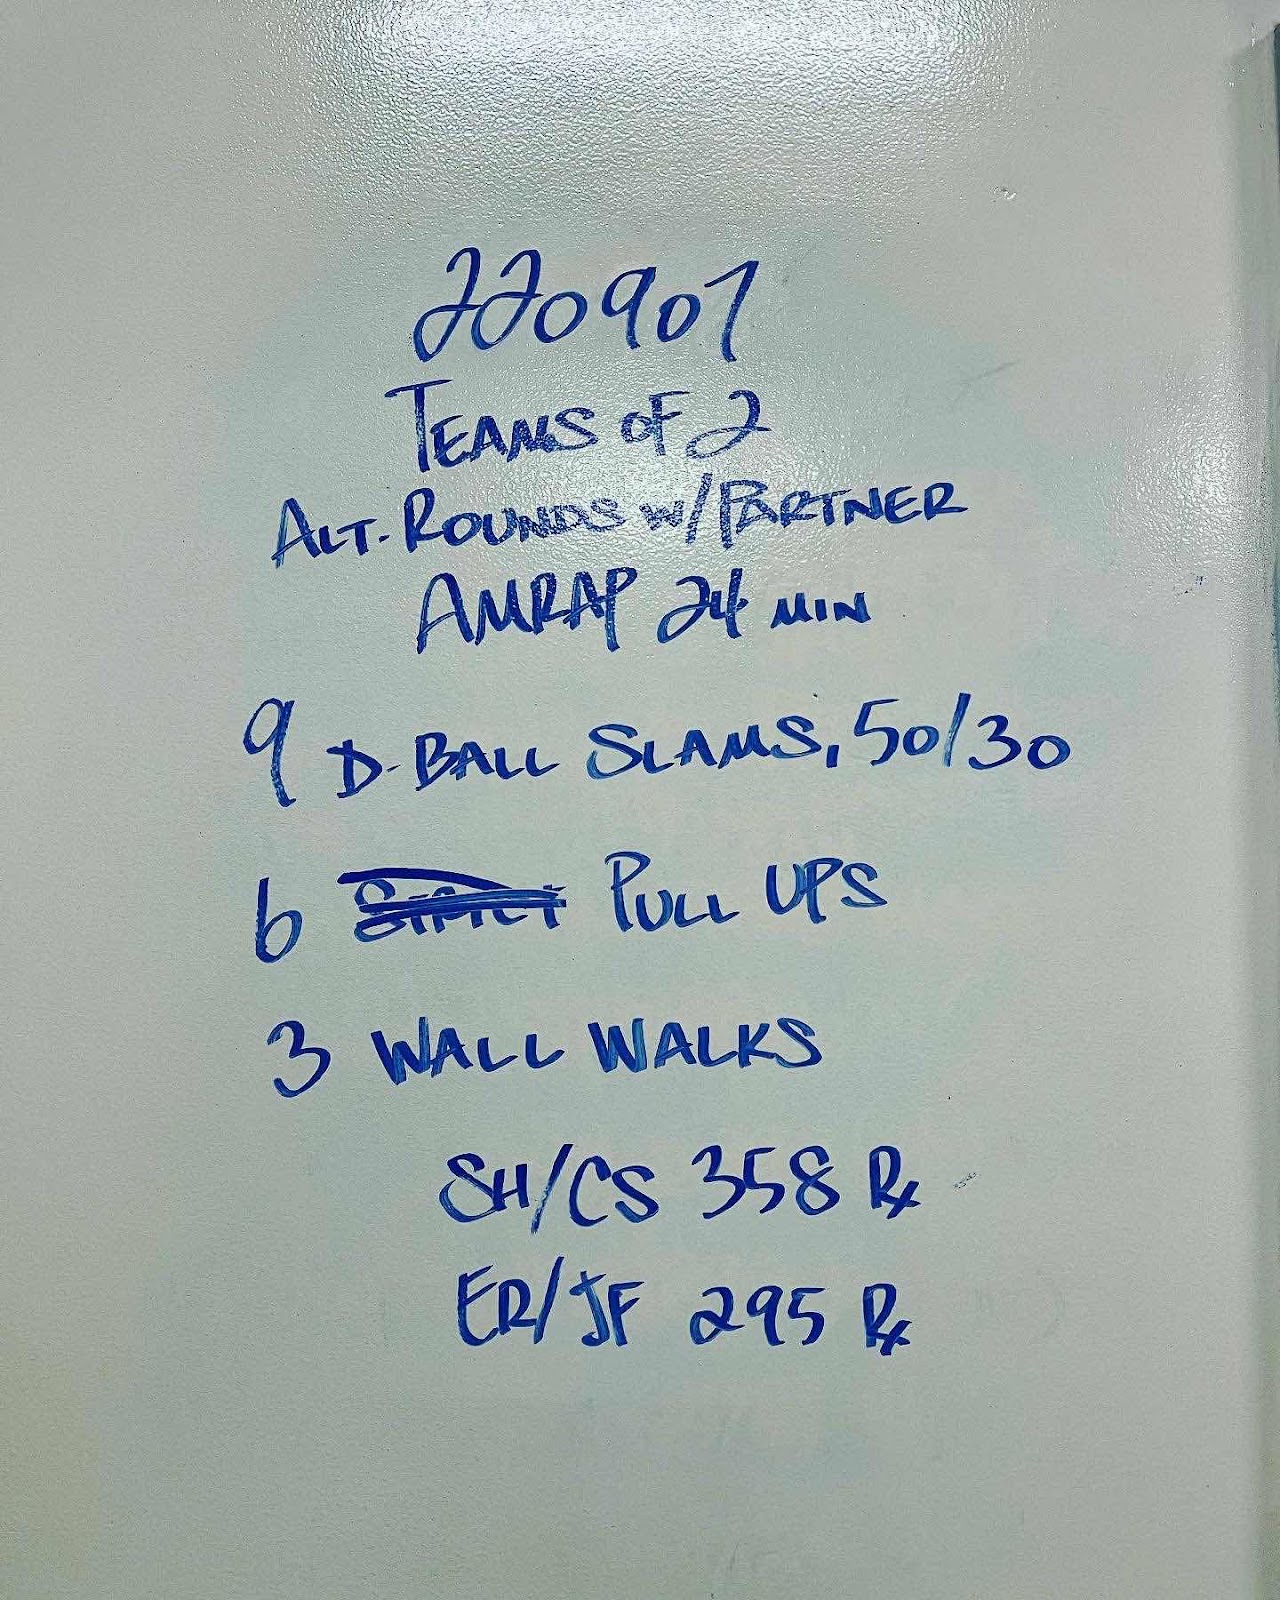 220907
TEAMS OF 2
ALT. ROUNDS W/PARTNER
AMRAP 24 MIN
9 D-BALL SLAMS, 50/30
6 STRICT PULL UPS
3 WALL WALKS
SH/CS 358 Rx
ER/JF 295 Rx